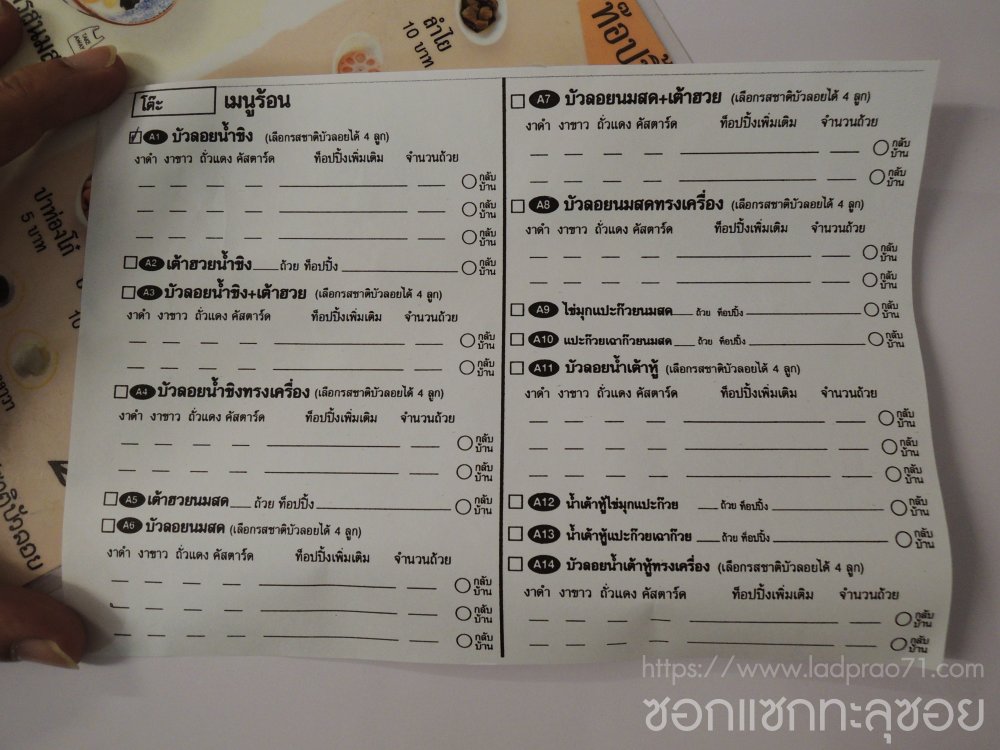 รสนมส
TAKE AWAY
ลำไย
10 บาท
ท็อปปิ้
ปาท่องโก๋
5 บาท
10
โต๊ะ
เมนูร้อน
A1 บัวลอยน้ำขิง (เลือกรสชาติบัวลอยได้ 4 ลูก)
งาดำ งาขาว ถั่วแดง คัสตาร์ด ท็อปปิ้งเพิ่มเติม จำนวนถ้วย
กลับบ้าน
กลับบ้าน
กลับบ้าน
A2 เต้าฮวยน้ำขิง ___ ถ้วย ท็อปปิ้ง ___ กลับบ้าน
A3 บัวลอยน้ำขิง+เต้าฮวย (เลือกรสชาติบัวลอยได้ 4 ลูก)
งาดำ งาขาว ถั่วแดง คัสตาร์ด ท็อปปิ้งเพิ่มเติม จำนวนถ้วย
กลับบ้าน
กลับบ้าน
A4 บัวลอยน้ำขิงทรงเครื่อง (เลือกรสชาติบัวลอยได้ 4 ลูก)
งาดำ งาขาว ถั่วแดง คัสตาร์ด ท็อปปิ้งเพิ่มเติม จำนวนถ้วย
กลับบ้าน
กลับบ้าน
A5 เต้าฮวยนมสด ___ ถ้วย ท็อปปิ้ง ___ กลับบ้าน
A6 บัวลอยนมสด (เลือกรสชาติบัวลอยได้ 4 ลูก)
งาดำ งาขาว ถั่วแดง คัสตาร์ด ท็อปปิ้งเพิ่มเติม จำนวนถ้วย
กลับบ้าน
กลับบ้าน
กลับบ้าน
A7 บัวลอยนมสด+เต้าฮวย (เลือกรสชาติบัวลอยได้ 4 ลูก)
งาดำ งาขาว ถั่วแดง คัสตาร์ด ท็อปปิ้งเพิ่มเติม จำนวนถ้วย
กลับบ้าน
กลับบ้าน
A8 บัวลอยนมสดทรงเครื่อง (เลือกรสชาติบัวลอยได้ 4 ลูก)
งาดำ งาขาว ถั่วแดง คัสตาร์ด ท็อปปิ้งเพิ่มเติม จำนวนถ้วย
กลับบ้าน
กลับบ้าน
A9 ไข่มุกแปะก๊วยนมสด ___ ถ้วย ท็อปปิ้ง ___ กลับบ้าน
A10 แปะก๊วยเฉาก๊วยนมสด ___ ถ้วย ท็อปปิ้ง ___ กลับบ้าน
A11 บัวลอยน้ำเต้าหู้ (เลือกรสชาติบัวลอยได้ 4 ลูก)
งาดำ งาขาว ถั่วแดง คัสตาร์ด ท็อปปิ้งเพิ่มเติม จำนวนถ้วย
กลับบ้าน
กลับบ้าน
กลับบ้าน
A12 น้ำเต้าหู้ไข่มุกแปะก๊วย ___ ถ้วย ท็อปปิ้ง ___ กลับบ้าน
A13 น้ำเต้าหู้แปะก๊วยเฉาก๊วย ___ ถ้วย ท็อปปิ้ง ___ กลับบ้าน
A14 บัวลอยน้ำเต้าหู้ทรงเครื่อง (เลือกรสชาติบัวลอยได้ 4 ลูก)
งาดำ งาขาว ถั่วแดง คัสตาร์ด ท็อปปิ้งเพิ่มเติม จำนวนถ้วย
กลับบ้าน
กลับบ้าน
https://www.ladprao71.com
ซอกแซกทะลุซอย